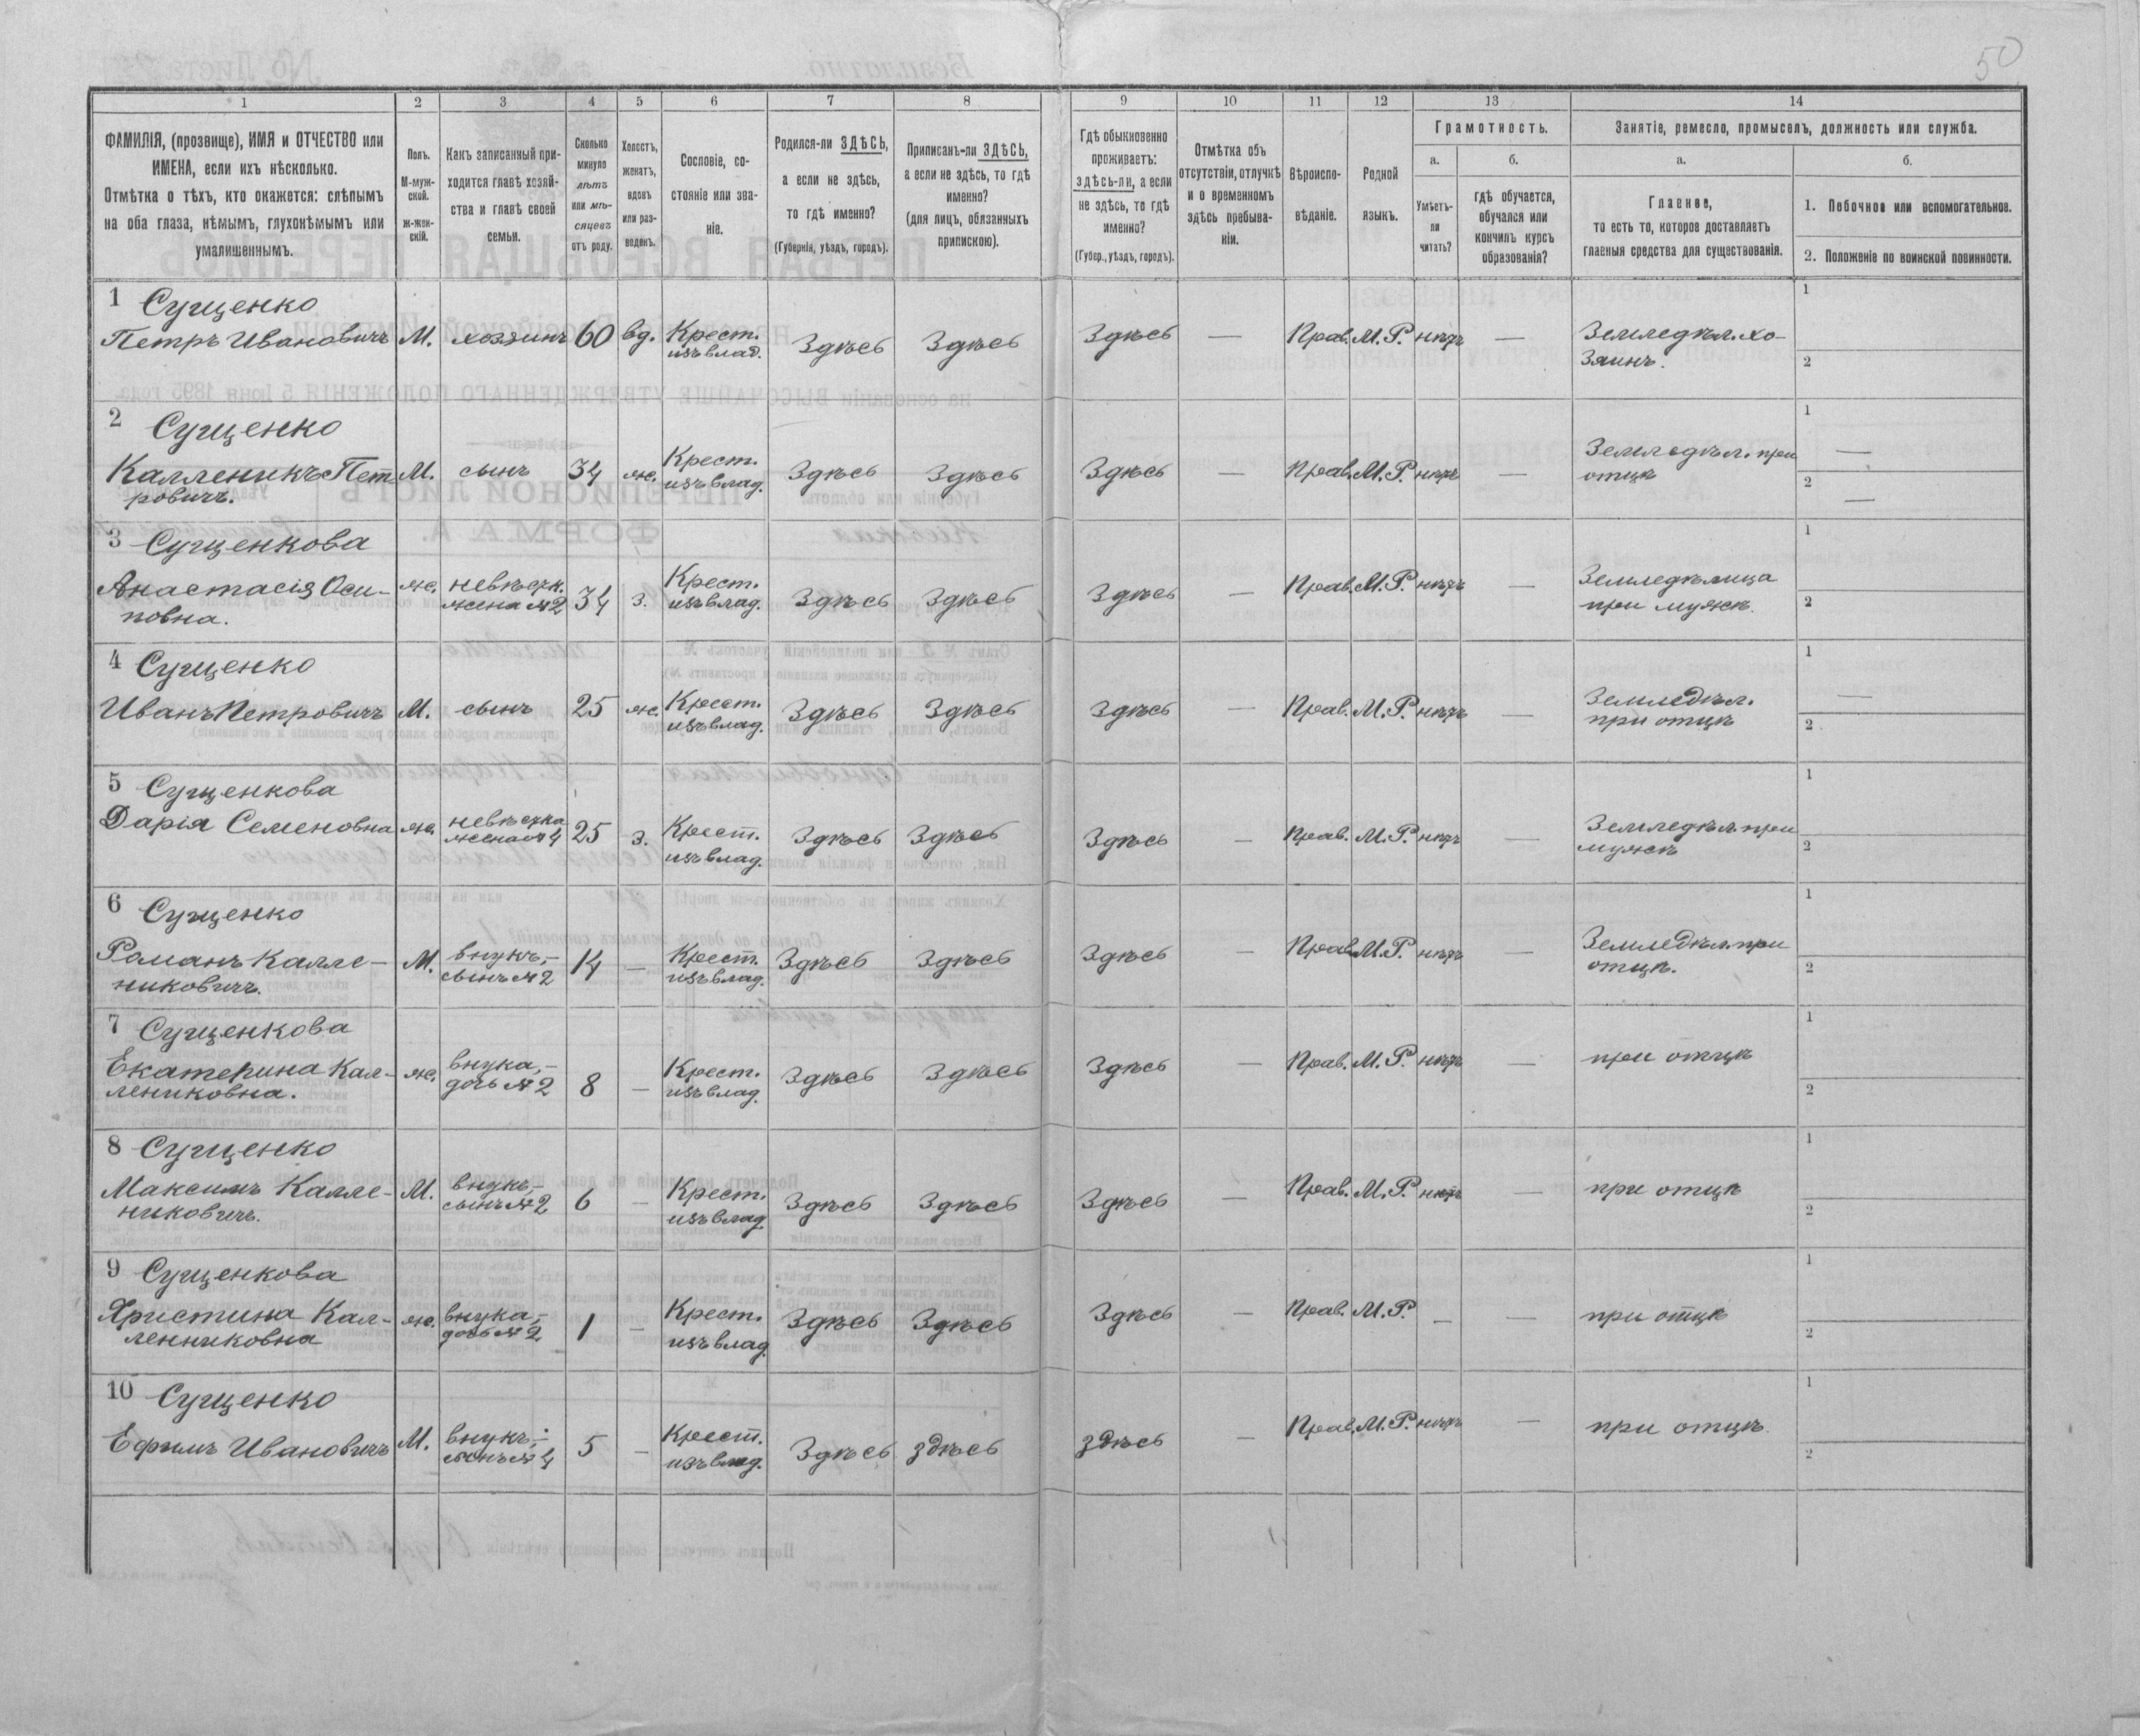 50
1 2 3 4 5 6 7 8 9 10 11 12 13 14
ФАМИЛІЯ, (прозвище), ИМЯ и ОТЧЕСТВО или
ИМЕНА, если ихъ нѣсколько.
Отмѣтка о тѣхъ, кто окажется: слѣпымъ
на оба глаза, нѣмымъ, глухонѣмымъ или
умалишеннымъ.
Полъ.
М-муж-
ской.
Ж-жен-
скій.
Какъ записанный при-
ходится главѣ хозяй-
ства и главѣ своей
семьи.
Сколько
минуло
лѣтъ
или мѣ-
сяцевъ
отъ роду.
Холостъ,
женатъ,
вдовъ
или раз-
веденъ.
Сословіе, со-
стояніе или зва-
ніе.
Родился-ли ЗДѢСЬ,
а если не здѣсь,
то гдѣ именно?
(Губернія, уѣздъ, городъ).
Приписанъ-ли ЗДѢСЬ,
а если не здѣсь, то гдѣ
именно?
(для лицъ, обязанныхъ
припискою).
Гдѣ обыкновенно
проживаетъ:
здѣсь-ли, а если
не здѣсь, то гдѣ
именно?
(Губер., уѣздъ, городъ).
Отмѣтка объ
отсутствіи, отлучкѣ
и о временномъ
здѣсь пребыва-
ніи.
Вѣроиспо-
вѣданіе.
Родной
языкъ.
Грамотность.
а.
Умѣетъ-
ли
читать?
б.
гдѣ обучается,
обучался или
кончилъ курсъ
образованія?
Занятіе, ремесло, промыселъ, должность или служба.
а.
Главное,
то есть то, которое доставляетъ
главныя средства для существованія.
б.
1. Побочное или вспомогательное.
2. Положеніе по воинской повинности.
1 Сущенко
Петръ Ивановичъ М. хозяинъ 60 вд. Крест. Здѣсь Здѣсь Здѣсь — Прав. М.Р. нѣтъ — Земледѣл. хо-
изъ влад. зяинъ.
1
2
2 Сущенко
Калленикъ Пет М. сынъ 34 ж. Крест. Здѣсь Здѣсь Здѣсь — Прав. М.Р. нѣтъ — Земледѣл. при
ровичъ. изъ влад. отцѣ
1 —
2 —
3 Сущенкова
Анастасія Оси- ж. невѣстк. 34 з. Крест. Здѣсь Здѣсь Здѣсь — Прав. М.Р. нѣтъ — Земледѣлица
повна. жена №2 изъ влад. при мужѣ
1
2
4 Сущенко
Иванъ Петровичъ М. сынъ 25 ж. Крест. Здѣсь Здѣсь Здѣсь — Прав. М.Р. нѣтъ — Земледѣл.
изъ влад. при отцѣ
1 —
2
5 Сущенкова
Дарія Семеновна ж. невѣстка 25 з. Крест. Здѣсь Здѣсь Здѣсь — Прав. М.Р. нѣтъ — Земледѣл. при
жена №4 изъ влад. мужѣ
1
2
6 Сущенко
Романъ Калле- М. внукъ,- 14 — Крест. Здѣсь Здѣсь Здѣсь — Прав. М.Р. нѣтъ — Земледѣл. при
никовичъ. сынъ №2 изъ влад. отцѣ.
1
2
7 Сущенкова
Екатерина Кал- ж. внука,- 8 — Крест. Здѣсь Здѣсь Здѣсь — Прав. М.Р. нѣтъ — при отцѣ
лениковна. дочь №2 изъ влад.
1
2
8 Сущенко
Максимъ Калле- М. внукъ,- 6 — Крест. Здѣсь Здѣсь Здѣсь — Прав. М.Р. нѣтъ — при отцѣ
никовичъ. сынъ №2 изъ влад.
1
2
9 Сущенкова
Христина Кал- ж. внука,- 1 — Крест. Здѣсь Здѣсь Здѣсь — Прав. М.Р. — — при отцѣ
ленниковна дочь №2 изъ влад.
1
2
10 Сущенко
Ефимъ Ивановичъ М. внукъ,- 5 — Крест. Здѣсь здѣсь здѣсь — Прав. М.Р. нѣтъ — при отцѣ
сынъ №4 изъ влад.
1
2